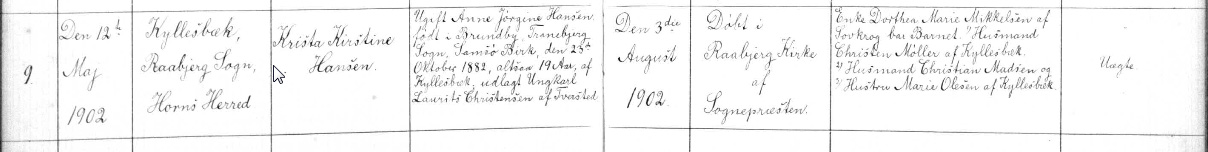 9
Den 12te
Maj
1902
Kyllesbæk,
Raabjerg Sogn,
Horns Herred
Krista Kirstine
Hansen.
Ugift Anne Jörgine Hansen.
född i Brundby, Tranebjerg
Sogn, Samsö Birk, den 23de
Oktober 1882, altsaa 19 Aar, af
Kyllesbæk, udlagt Ungkarl
Laurits Christensen af Tversted
Den 3die
August
1902.
Döbt i
Raabjerg Kirke
af
Sognepræsten.
Enke Dorthea Marie Mikkelsen af
Sovkrog bar Barnet. 1) Husmand
Christen Möller af Kyllesbæk.
2) Husmand Christian Madsen og
3) Hustru Marie Olesen af Kyllesbæk.
Uægte